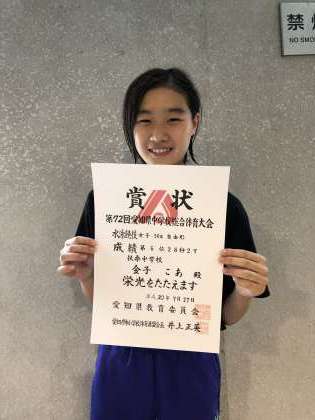 禁
NO SMO
賞状
第72回愛知県中学校総合体育大会
水泳競技 女子 50m 自由形
成績 第5位28秒27
扶桑中学校
金子 こあ 殿
栄光をたたえます
平成30年7月27日
愛知県教育委員会
井上正英